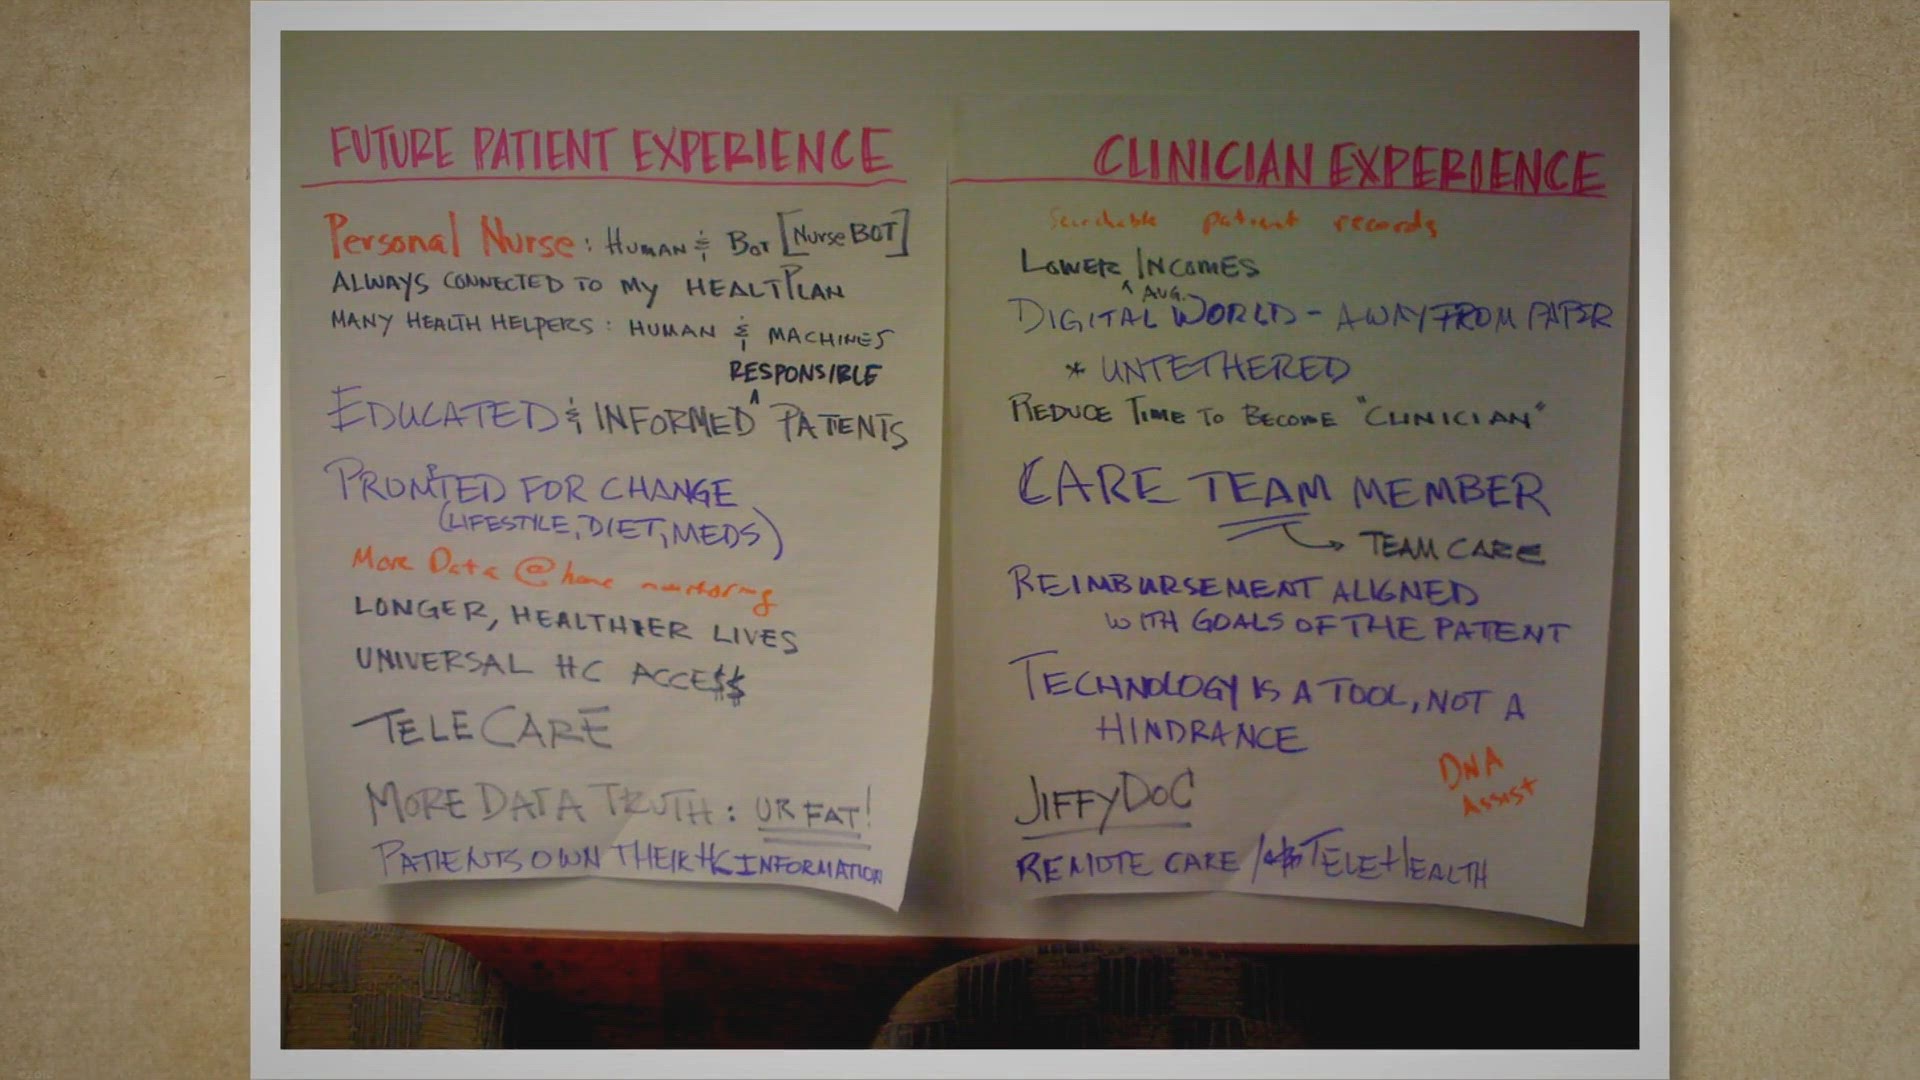 FUTURE PATIENT EXPERIENCE
Personal Nurse: HUMAN & BOT [Nurse BOT]
ALWAYS CONNECTED TO MY HEALTPLAN
MANY HEALTH HELPERS: HUMAN & MACHINES
RESPONSIBLE
EDUCATED & INFORMED ^ PATIENTS
PROMTED FOR CHANGE
(LIFESTYLE, DIET, MEDS)
More Data @ home monitoring
LONGER, HEALTHIER LIVES
UNIVERSAL HC ACCE$$
TELECARE
MORE DATA TRUTH: UR FAT!
PATIENTS OWN THEIR HC INFORMATION
CLINICIAN EXPERIENCE
Searchable patient records
LOWER INCOMES
^ AUG.
DIGITAL WORLD - AWAY FROM PAPER
* UNTETHERED
REDUCE TIME TO BECOME "CLINICIAN"
CARE TEAM MEMBER
→ TEAM CARE
REIMBURSEMENT ALIGNED
WITH GOALS OF THE PATIENT
TECHNOLOGY IS A TOOL, NOT A
HINDRANCE
DNA
Assist
JIFFYDOC
REMOTE CARE / TELEHEALTH